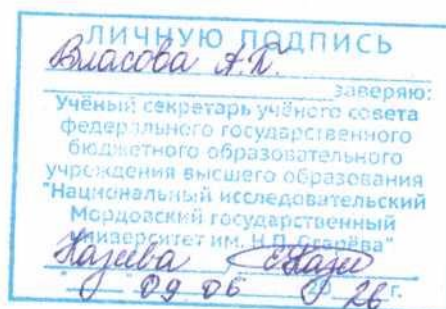 ЛИЧНУЮ ПОДПИСЬ
Власова А.К.
заверяю:
Учёный секретарь учёного совета
федерального государственного
бюджетного образовательного
учреждения высшего образования
"Национальный исследовательский
Мордовский государственный
университет им. Н.П. Огарёва"
"09" 06 2026 г.